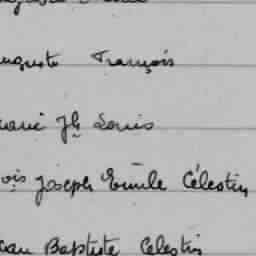 auguste François
marie Jh Louis
ois Joseph Emile Célestin
ean Baptiste Celestin